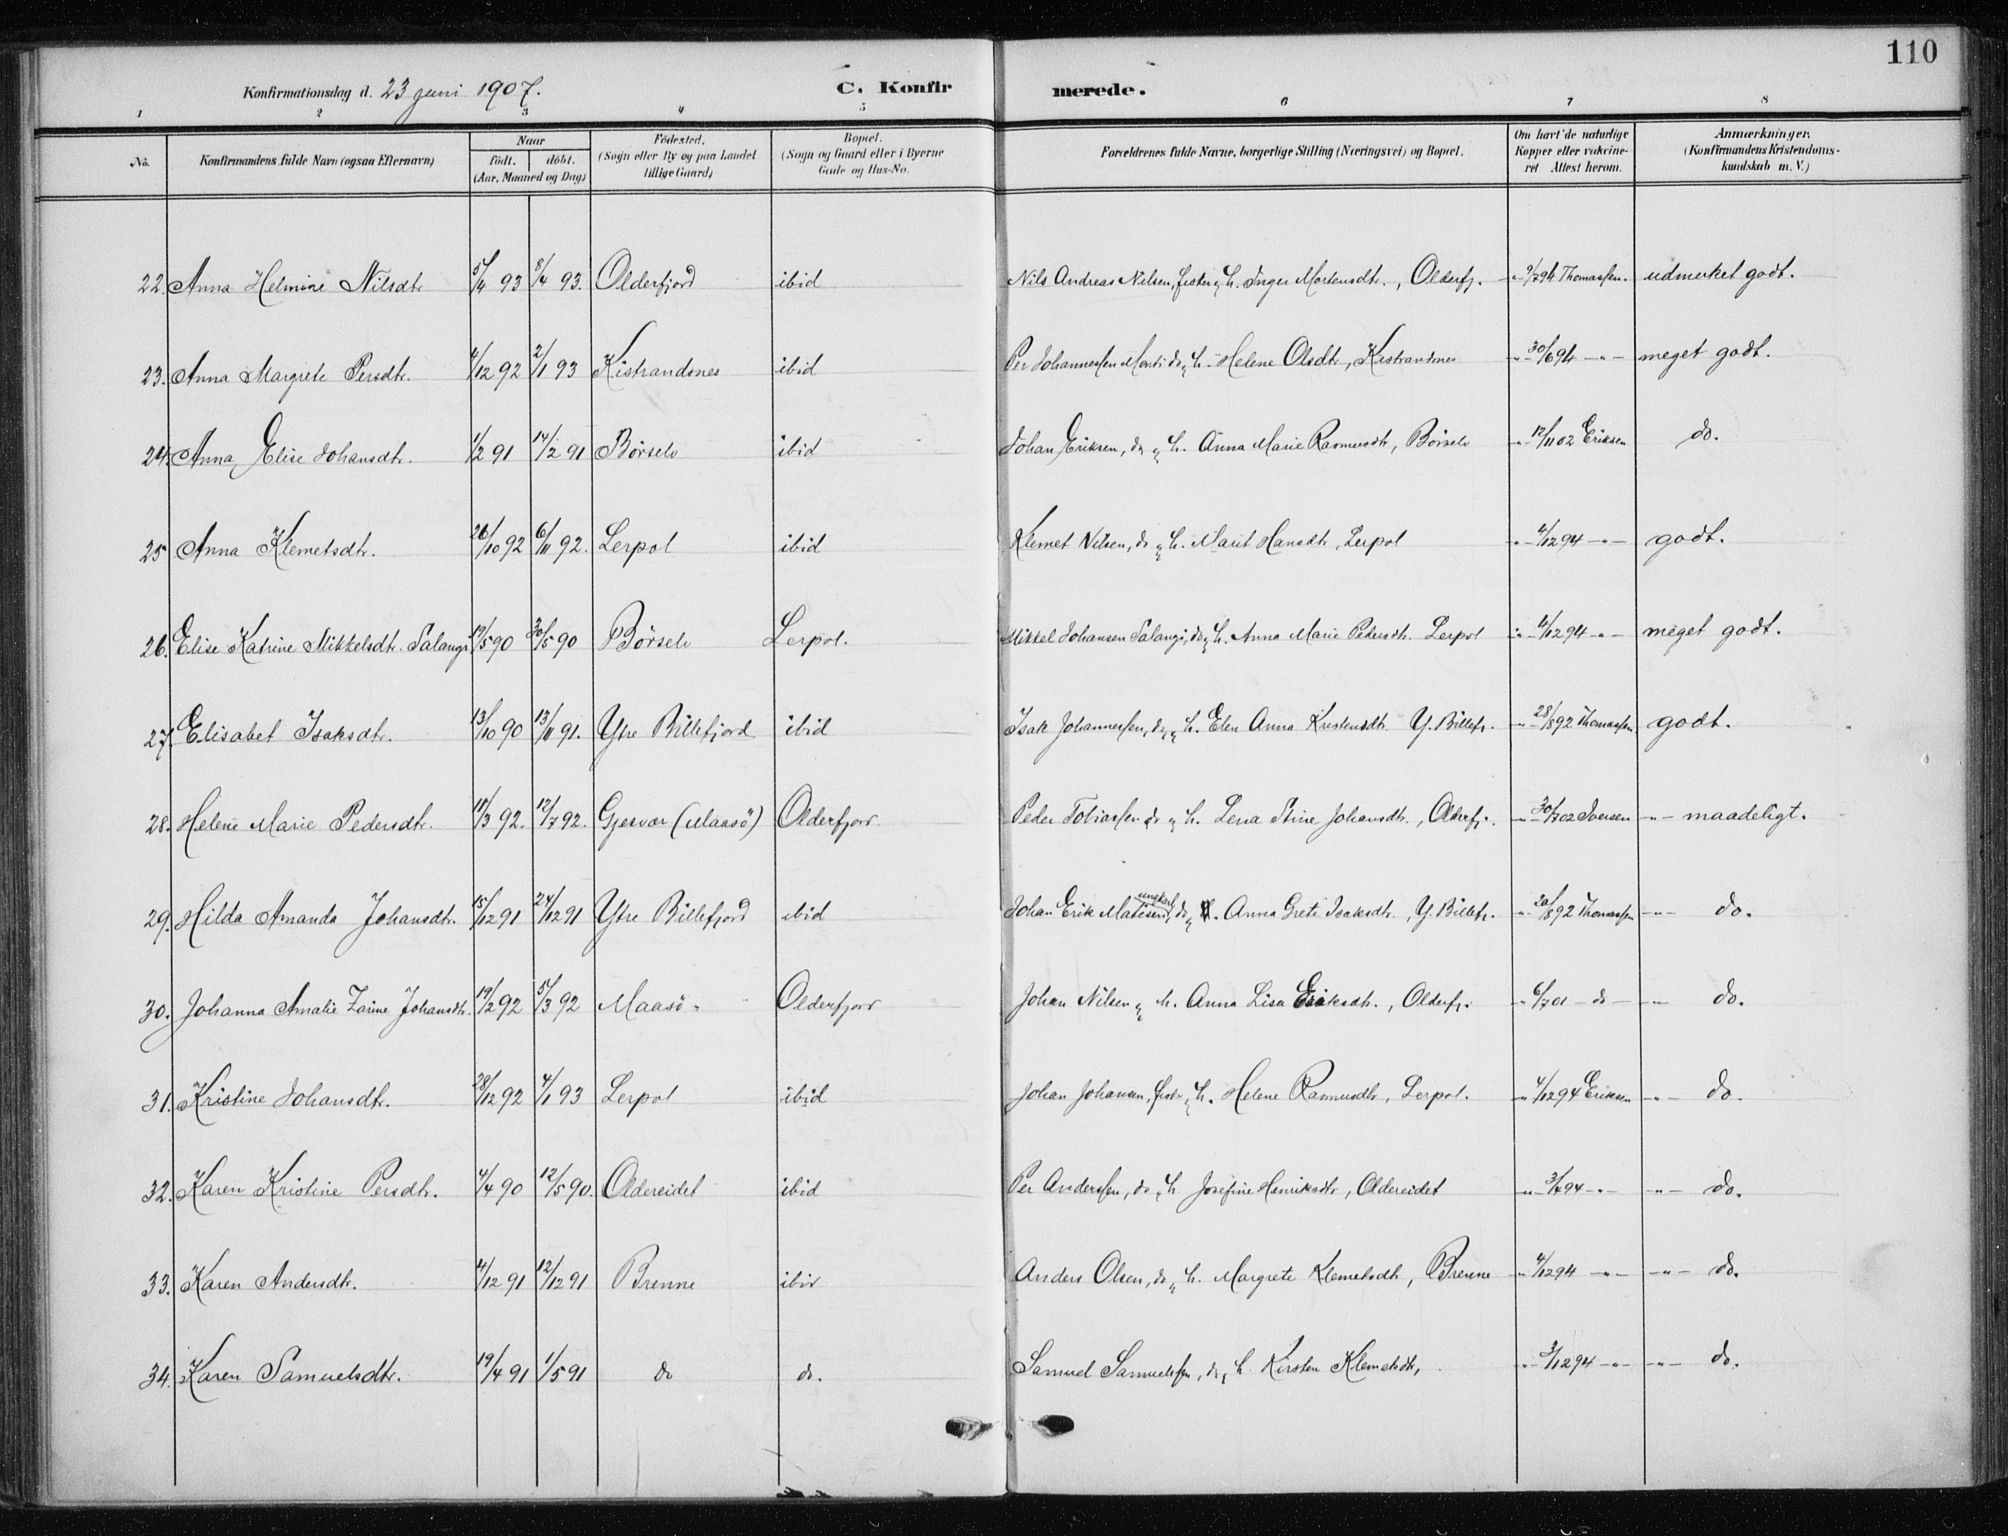 110
Konfirmationsdag d. 23 juni 1907. C. Konfir merede.
1 2 3 4 5 6 7 8
No. Konfirmandens fulde Navn (ogsaa Efternavn) Naar födt. döbt. (Aar, Maaned og Dag) Födested. (Sogn eller By og paa Landet tillige Gaard) Bopæl. (Sogn og Gaard eller i Byerne Gade og Hus-No. Forældrenes fulde Navne, borgerlige Stilling (Næringsvei) og Bopæl. Om havt de naturlige Kopper eller vakcineret Attest herom. Anmærkninger. (Konfirmandens Kristendomskundskab m. V.)
22. Anna Helmine Nilsdtr. 5/4 93 8/4 93. Olderfjord ibid Nils Andreas Nilsen, fisker og h. Inger Mortensdtr., Olderfj. -"- 9/7 94 Thomassen. udmerket godt.
23. Anna Margrete Persdtr. 4/12 92 2/1 93 Kistrandsnes ibid Per Johannessen do og h. Helene Olsdtr, Kistrandsnes -"- 30/6 94 -"- meget godt.
24. Anna Elise Johansdtr. 1/2 91 14/2 91 Börselv ibid Johan Eriksen, do og h. Anna Marie Rasmusdtr, Börselv -"- 12/11 02 Eriksen do.
25 Anna Klemetsdtr. 26/10 92 6/11 92. Lerpol ibid Klemet Nilsen, do og h. Marit Hansdtr, Lerpol -"- 4/12 94 -"- godt.
26. Elise Katrine Mikkelsdtr. Salangi 19/5 90 30/5 90 Börselv Lerpol. Mikkel Johansen Salangi, do og h. Anna Marie Pedersdtr. Lerpol -"- 4/12 94 -"- meget godt.
27. Elisabet Isaksdtr. 13/10 90 13/11 91. Ytre Billefjord ibid Isak Johannessen, do og h. Elen Anna Kristensdtr. Y. Billefj. -"- 28/8 92 Thomassen godt.
28. Helene Marie Pedersdtr. 11/3 92. 12/7 92. Gjesvær (Maasö) Olderfjord Peder Tobiassen do og h. Lena Stine Johansdtr., Olderfj. -"- 30/7 02 Iversen -"- maadeligt.
29. Hilda Amanda Johansdtr. 15/12 91 24/12 91 Ytre Billefjord ibid Johan Erik Matisen, ungkarl do og Anna Grete Isaksdtr., Y. Billefj. -"- 28/8 92 Thomassen -"- do.
30. Johanna Amalie Zarine Johansdtr. 19/2 92 5/3 92 Maasö Olderfjord Johan Nilsen og h. Anna Lisa Eriksdtr., Olderfj. -"- 6/7 01 - do - -"- do.
31. Kristine Johansdtr. 28/12 92 4/1 93 Lerpol ibid Johan Johansen, fisker og h. Helene Rasmusdtr, Lerpol. -"- 4/12 94 Eriksen -"- do.
32. Karen Kristine Persdtr. 4/4 90 12/5 90. Oldereidet ibid Per Anderssen, do og h. Josefine Henriksdtr, Oldereidet -"- 3/7 94 -"- -"- do.
33. Karen Andersdtr. 4/12 91 12/12 91 Brenne ibid Anders Olsen, do og h. Margrete Klemetsdtr, Brenne -"- 4/12 94 -"- -"- do.
34. Karen Samuelsdtr. 19/4 91 1/5 91 do do. Samuel Samuelssen, do og h. Kirsten Klemetsdtr, -"- 3/12 94 -"- -"- do.